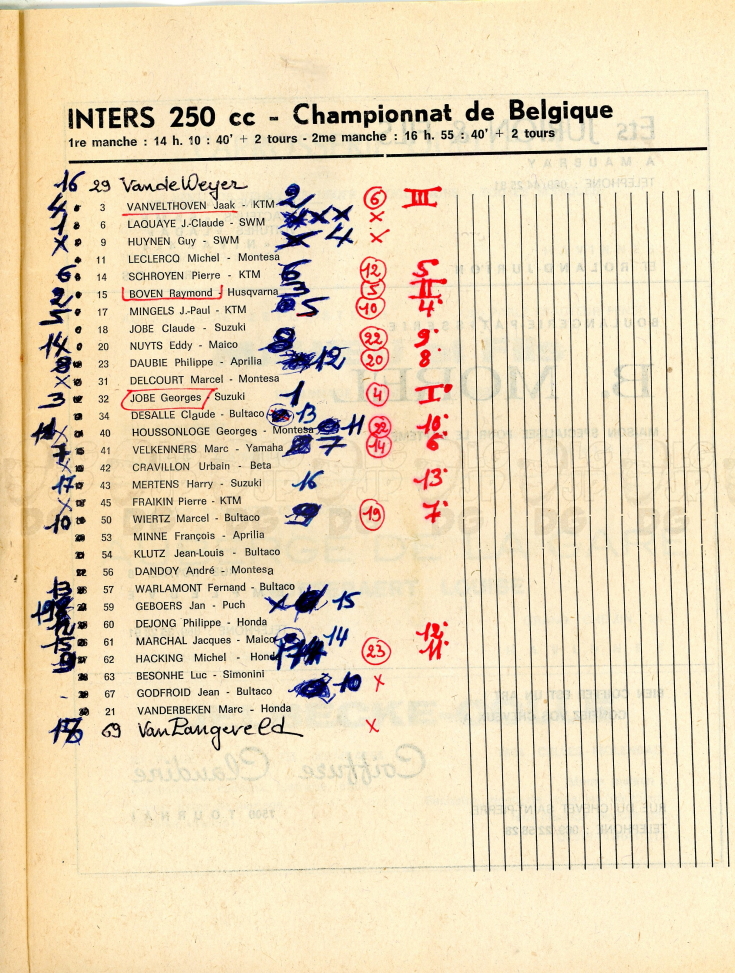 INTERS 250 cc - Championnat de Belgique
1re manche : 14 h. 10 : 40' + 2 tours - 2me manche : 16 h. 55 : 40' + 2 tours
16 29 Vande Weyer
4 3 VANVELTHOVEN Jaak - KTM 2 6 III
1 6 LAQUAYE J.-Claude - SWM XXX X
X 9 HUYNEN Guy - SWM 4 X
11 LECLERCQ Michel - Montesa
6 14 SCHROYEN Pierre - KTM 6 12 5
2 15 BOVEN Raymond - Husqvarna 3 5 II
5 17 MINGELS J.-Paul - KTM 5 10 4
18 JOBE Claude - Suzuki
14 20 NUYTS Eddy - Maico 8 22 9
8 23 DAUBIE Philippe - Aprilia 12 20 8
X 31 DELCOURT Marcel - Montesa
3 32 JOBE Georges - Suzuki 1 4 I
34 DESALLE Claude - Bultaco 13
X 40 HOUSSONLOGE Georges - Montesa 11 22 10
7 41 VELKENNERS Marc - Yamaha 7 14 6
X 42 CRAVILLON Urbain - Beta
17 43 MERTENS Harry - Suzuki 16 13
X 45 FRAIKIN Pierre - KTM
10 50 WIERTZ Marcel - Bultaco 9 19 7
53 MINNE François - Aprilia
54 KLUTZ Jean-Louis - Bultaco
56 DANDOY André - Montesa
13 57 WARLAMONT Fernand - Bultaco
59 GEBOERS Jan - Puch X 15
12 60 DEJONG Philippe - Honda
15 61 MARCHAL Jacques - Maico 14 12
9 62 HACKING Michel - Honda 23 11
63 BESONHE Luc - Simonini X
67 GODFROID Jean - Bultaco 10
21 VANDERBEKEN Marc - Honda
69 Van Langeveld X